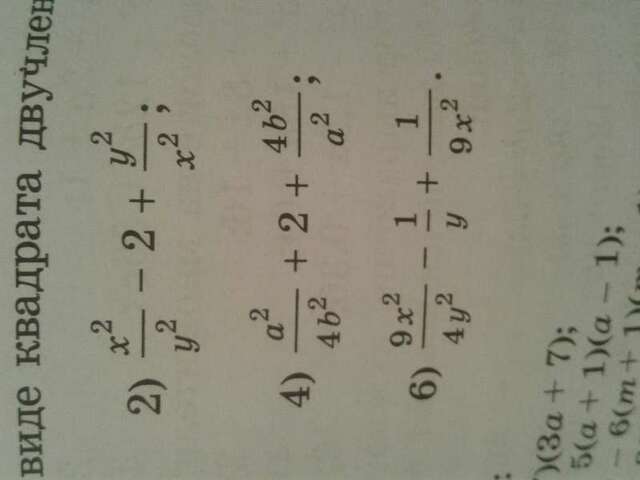 виде квадрата двучлен
2) x²/y² − 2 + y²/x²;
4) a²/4b² + 2 + 4b²/a²;
6) 9x²/4y² − 1/y + 1/9x².
:
)(3a + 7);
5(a + 1)(a − 1);
− 6(m + 1)(m